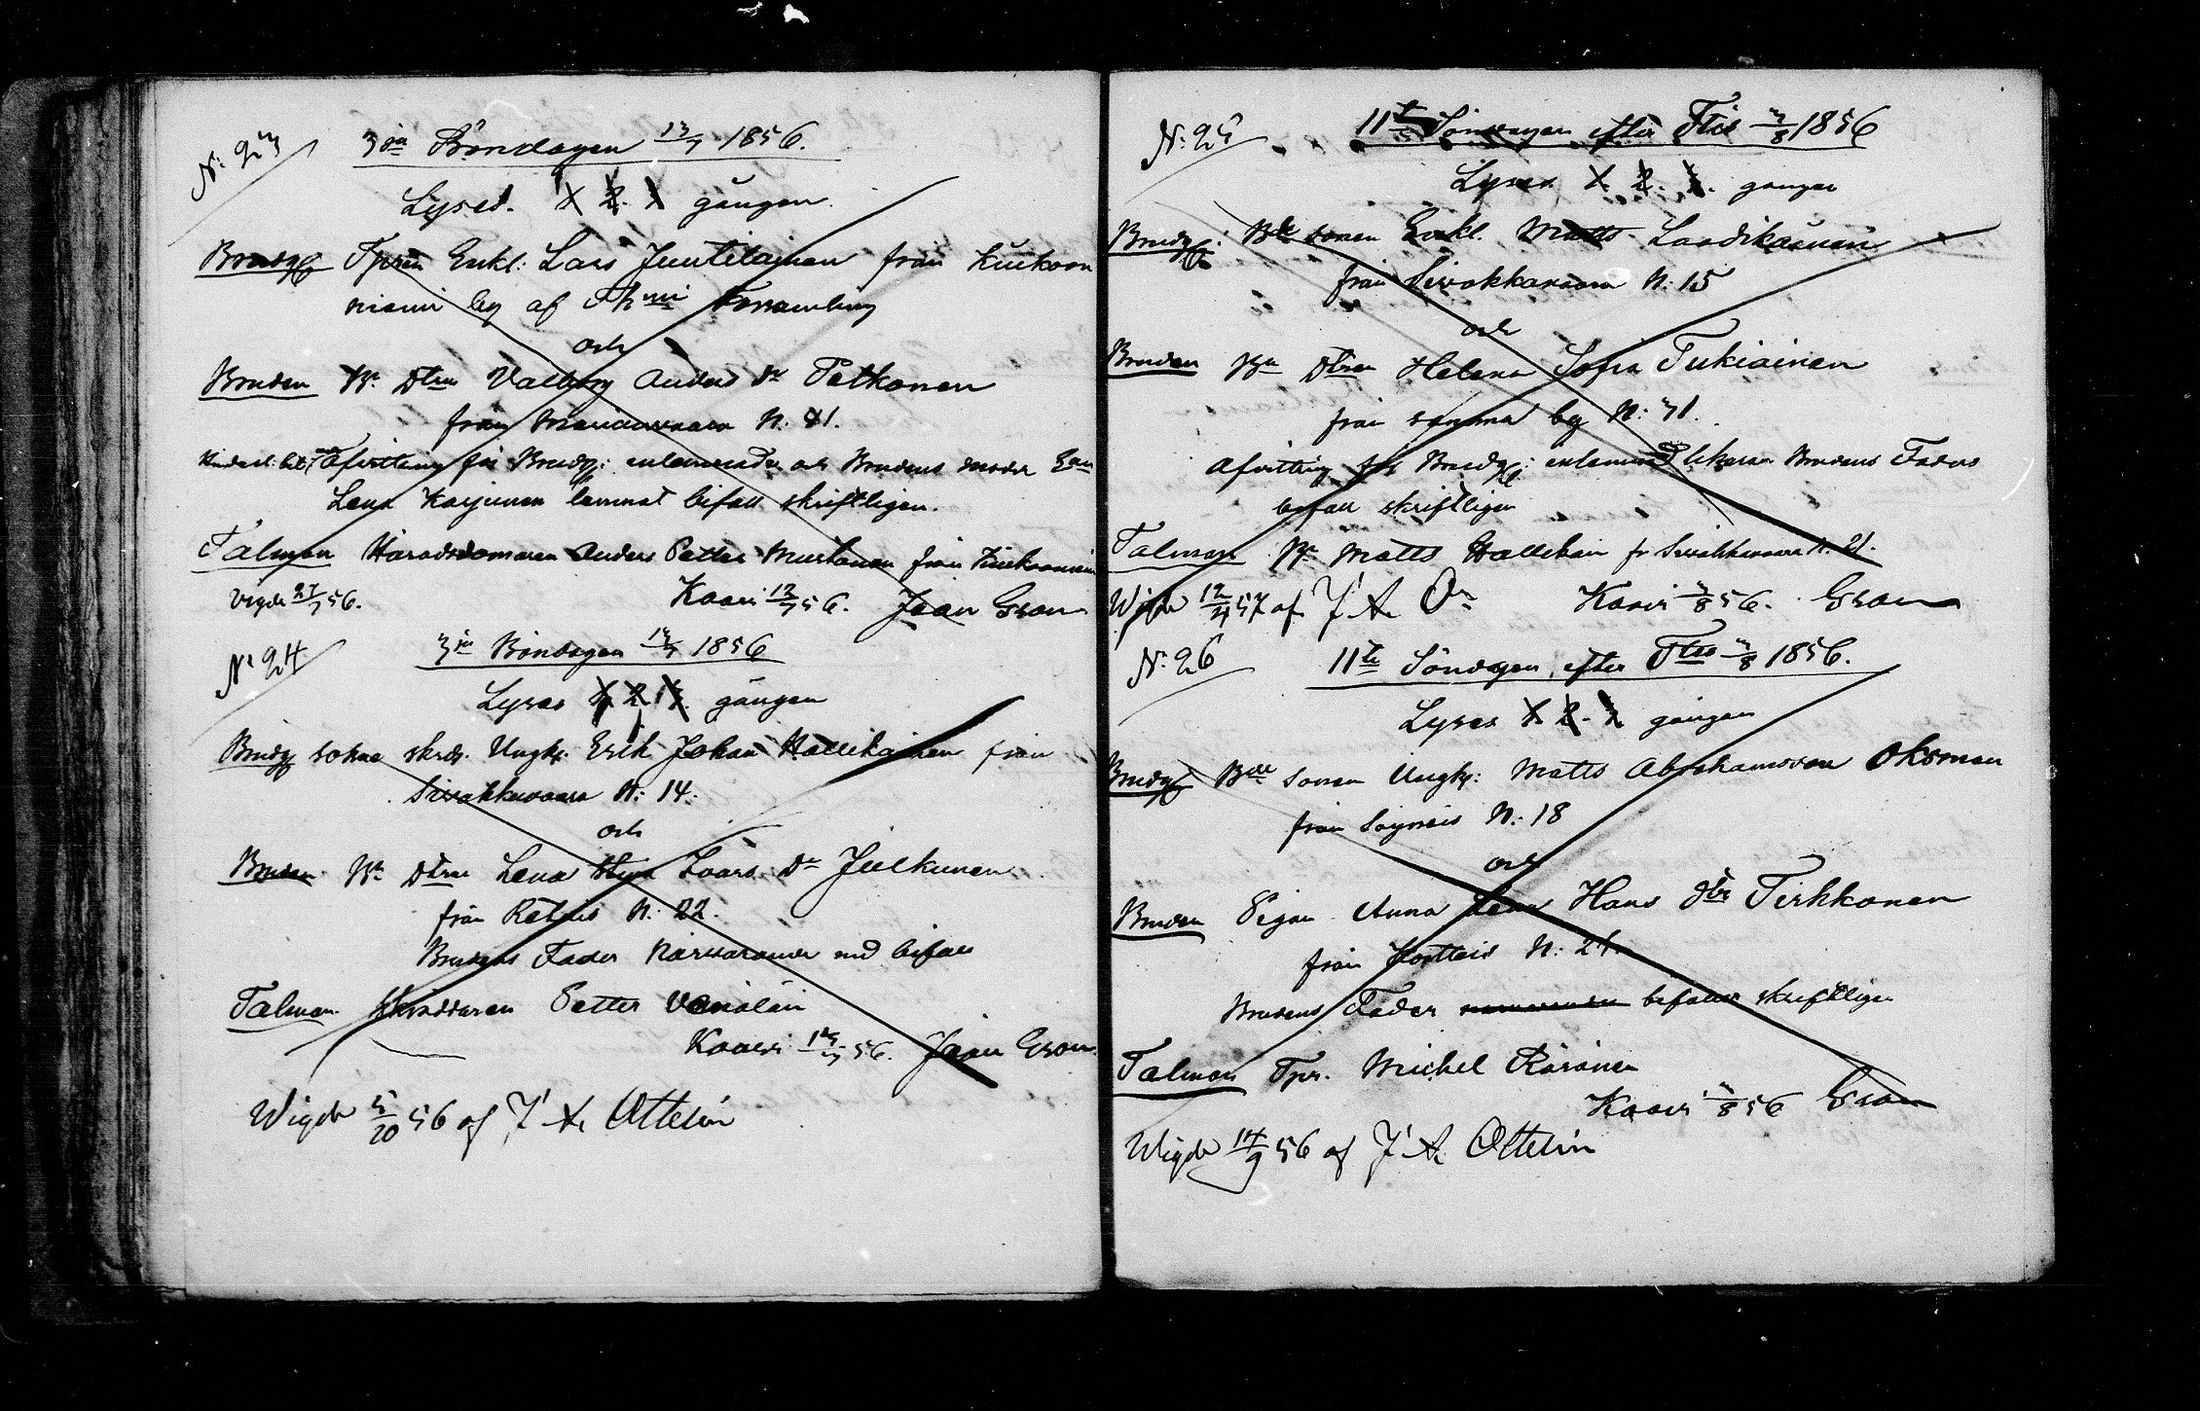 N: 23
3dn Böndagen 13/7 1856.
Lyses. 1 2. 3 gången.
Brudg Tprm Enkl: Lars Juntilainen från Kuikon
niemi by af församling
och
Bruden Be Dtren Valborg Anders dr Petkonen
från Marianvaara N: 41.
Afvittring för Brudg: inlemnades och Brudens moder
Lena Karjunen lemnat bifall skriftligen.
Talman Häradsdomaren Anders Petter Mustonen från
Vigde 27/7 56.
Kaavi 13/7 56. Johan Gron
N: 24
3dn Böndagen 13/7 1856
Lyses 1 2 3. gången
Brudg sokne skrdr. Ungk: Erik Johan Hallikainen från
Sivakkavaara N: 14.
och
Bruden Be Dtren Lena Stina Lars Dr Julkunen
från Retunis N: 22.
Brudens Fader närvarande med bifall
Talman Skräddaren Petter
Kaavi 13/7 56. Johan Gron
Wigde 5/10 56 af J A. Ottelin
N: 25
11te Söndagen efter Ttis 3/8 1856
Lyses 1. 2. 3. gången
Brudg: Bde sonen Enkl. Matts Laadikainen
från Sivakkavaara N: 15
och
Bruden Be Dtren Helena Sofia Tukiainen
från samma by N: 31.
Afvittring för Brudg: inlemnad likasom Brudens Faders
bifall skriftligen
Talman Be Matts Hallikain fr Sivakkavaara N. 21.
Wigde 12/4 57 af J A. On
Kaavi 3/8 56. Gron
N: 26
11te Söndagen efter Ttis 3/8 1856.
Lyses 1 2. 3 gången
Brudg Bde Sonen Ungk: Matts Abrahamsson Oksman
från Soynis N: 18
och
Bruden Pigan Anna Lena Hans dtr Tirkkonen
från Kortteis N: 21.
Brudens Fader bifaller skriftligen
Talman Tpr. Michel Räsänen
Kaavi 3/8 56 Gron
Wigde 14/9 56 af J A. Ottelin